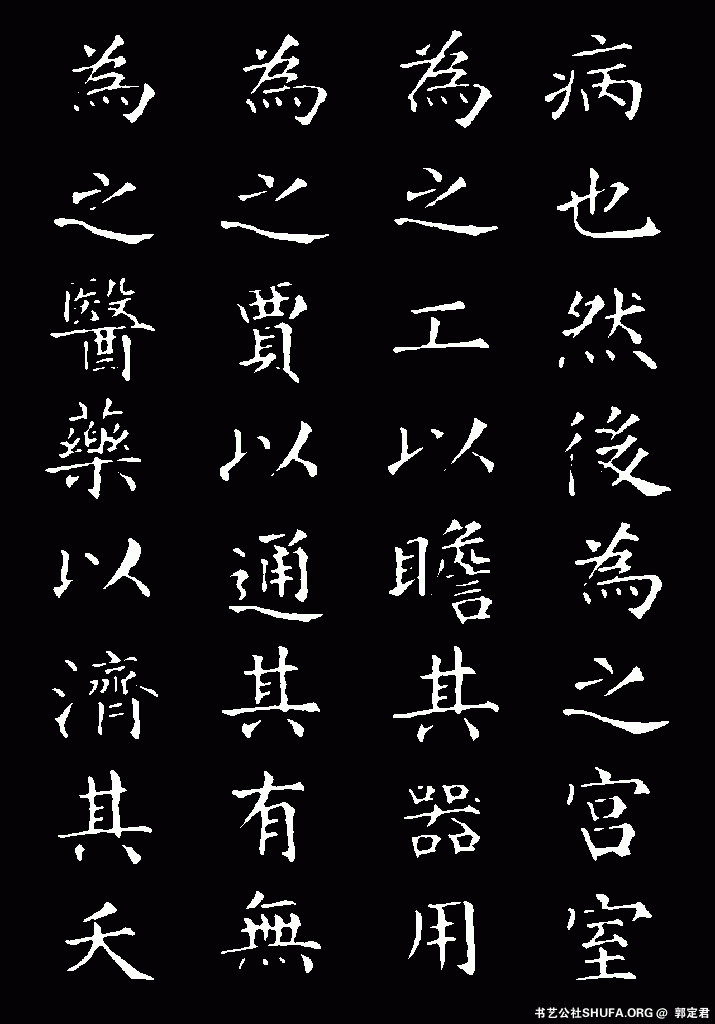 病也然後為之宮室
為之工以瞻其器用
為之賈以通其有無
為之醫藥以濟其夭
书艺公社SHUFA.ORG @ 郭定君